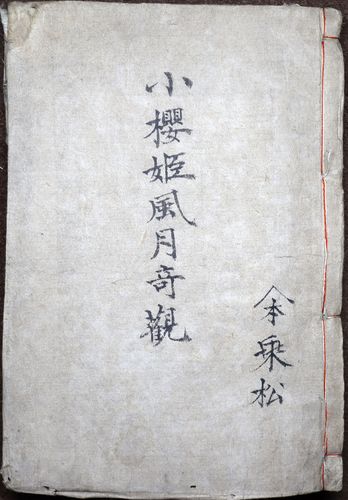 小櫻姫風月奇觀
𠆢本乗松